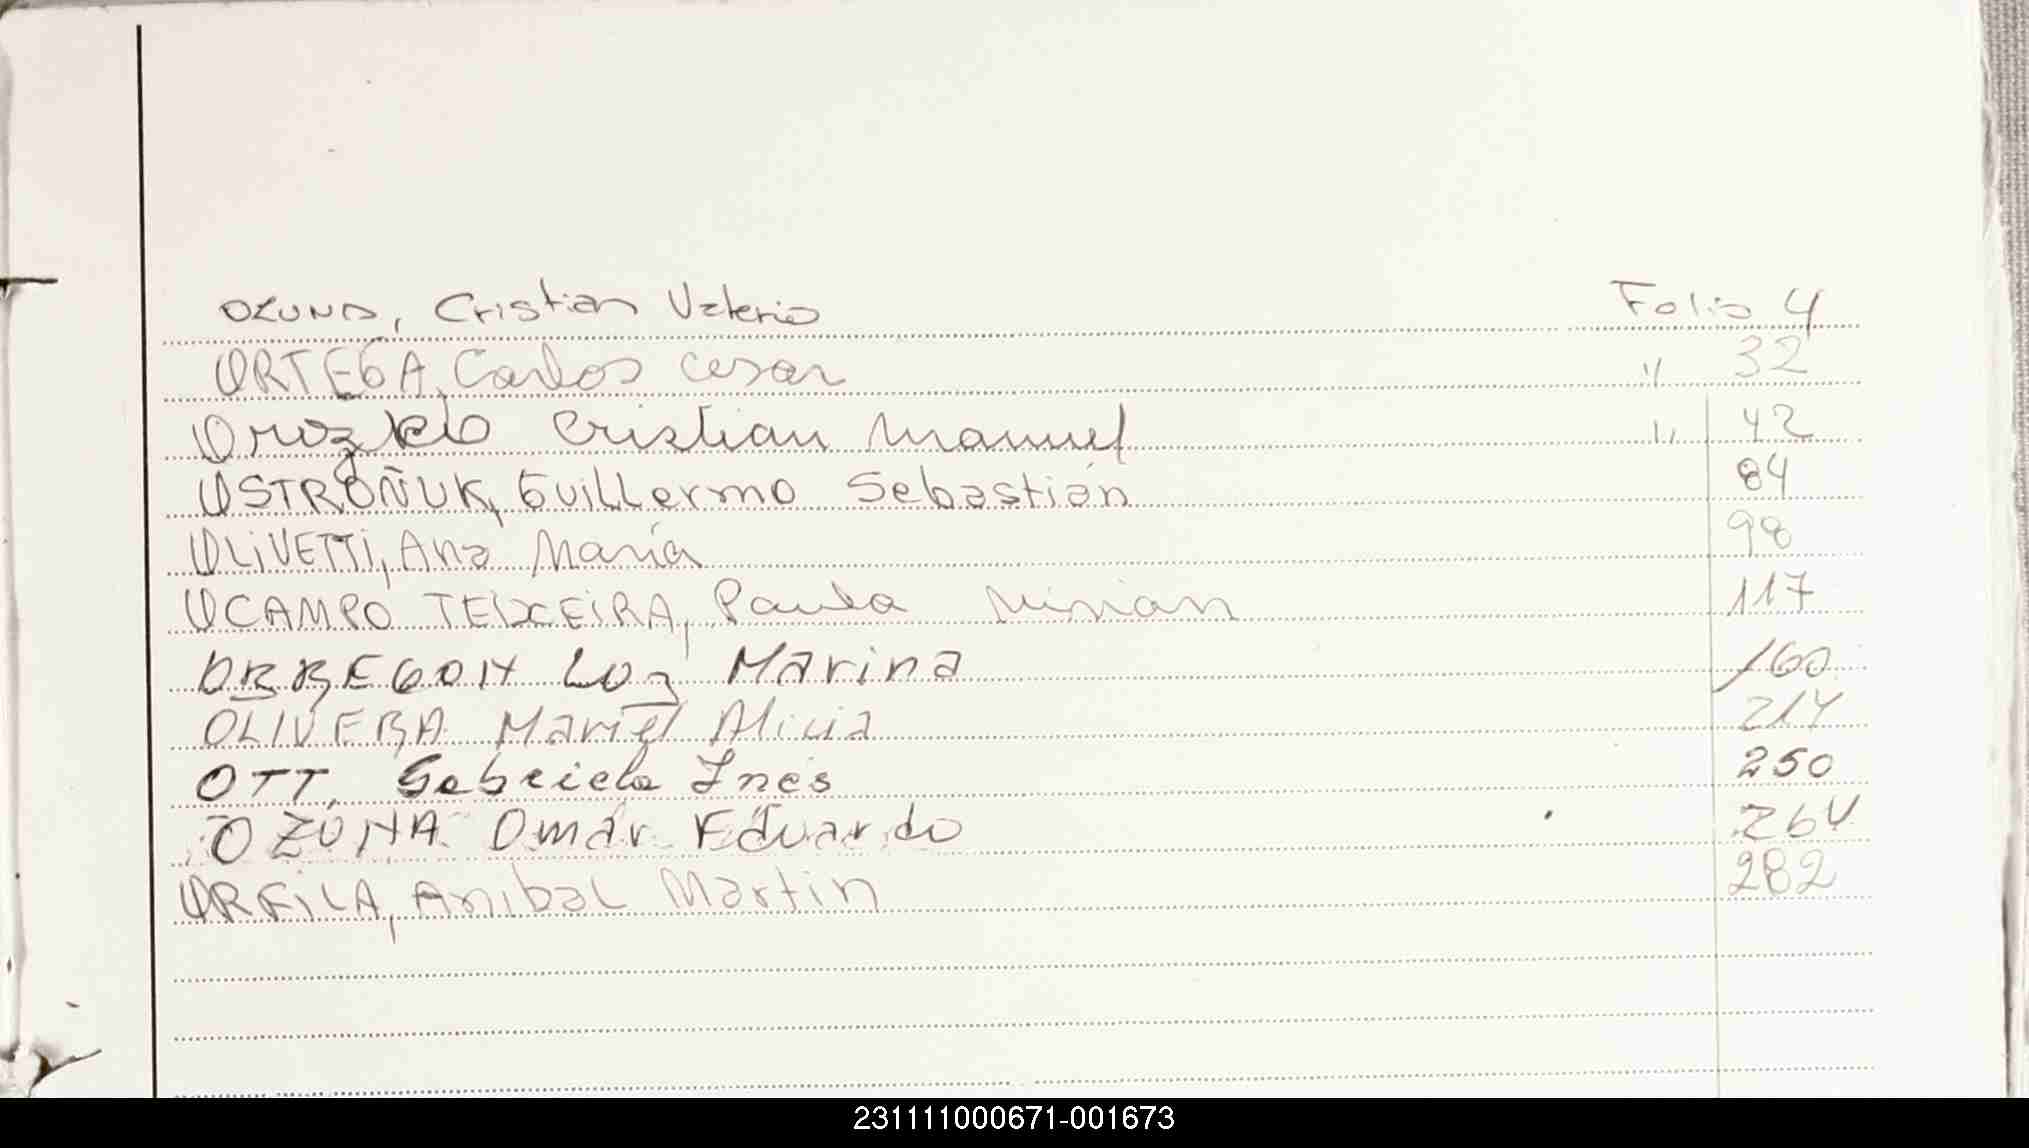 OZUNA, Cristian Valerio Folio 4
ORTEGA, Carlos Cesar " 32
Cristian Manuel " 42
OSTROÑUK, Guillermo Sebastián 84
OLIVETTI, Ana María 98
OCAMPO TEIXEIRA, Paula Mirian 117
OBREGON Luz Marina 160
OLIVERA Mariel Alicia 214
OTT, Gabriela Inés 250
OZUNA Omar Eduardo 264
ORFILA, Anibal Martin 282
231111000671-001673